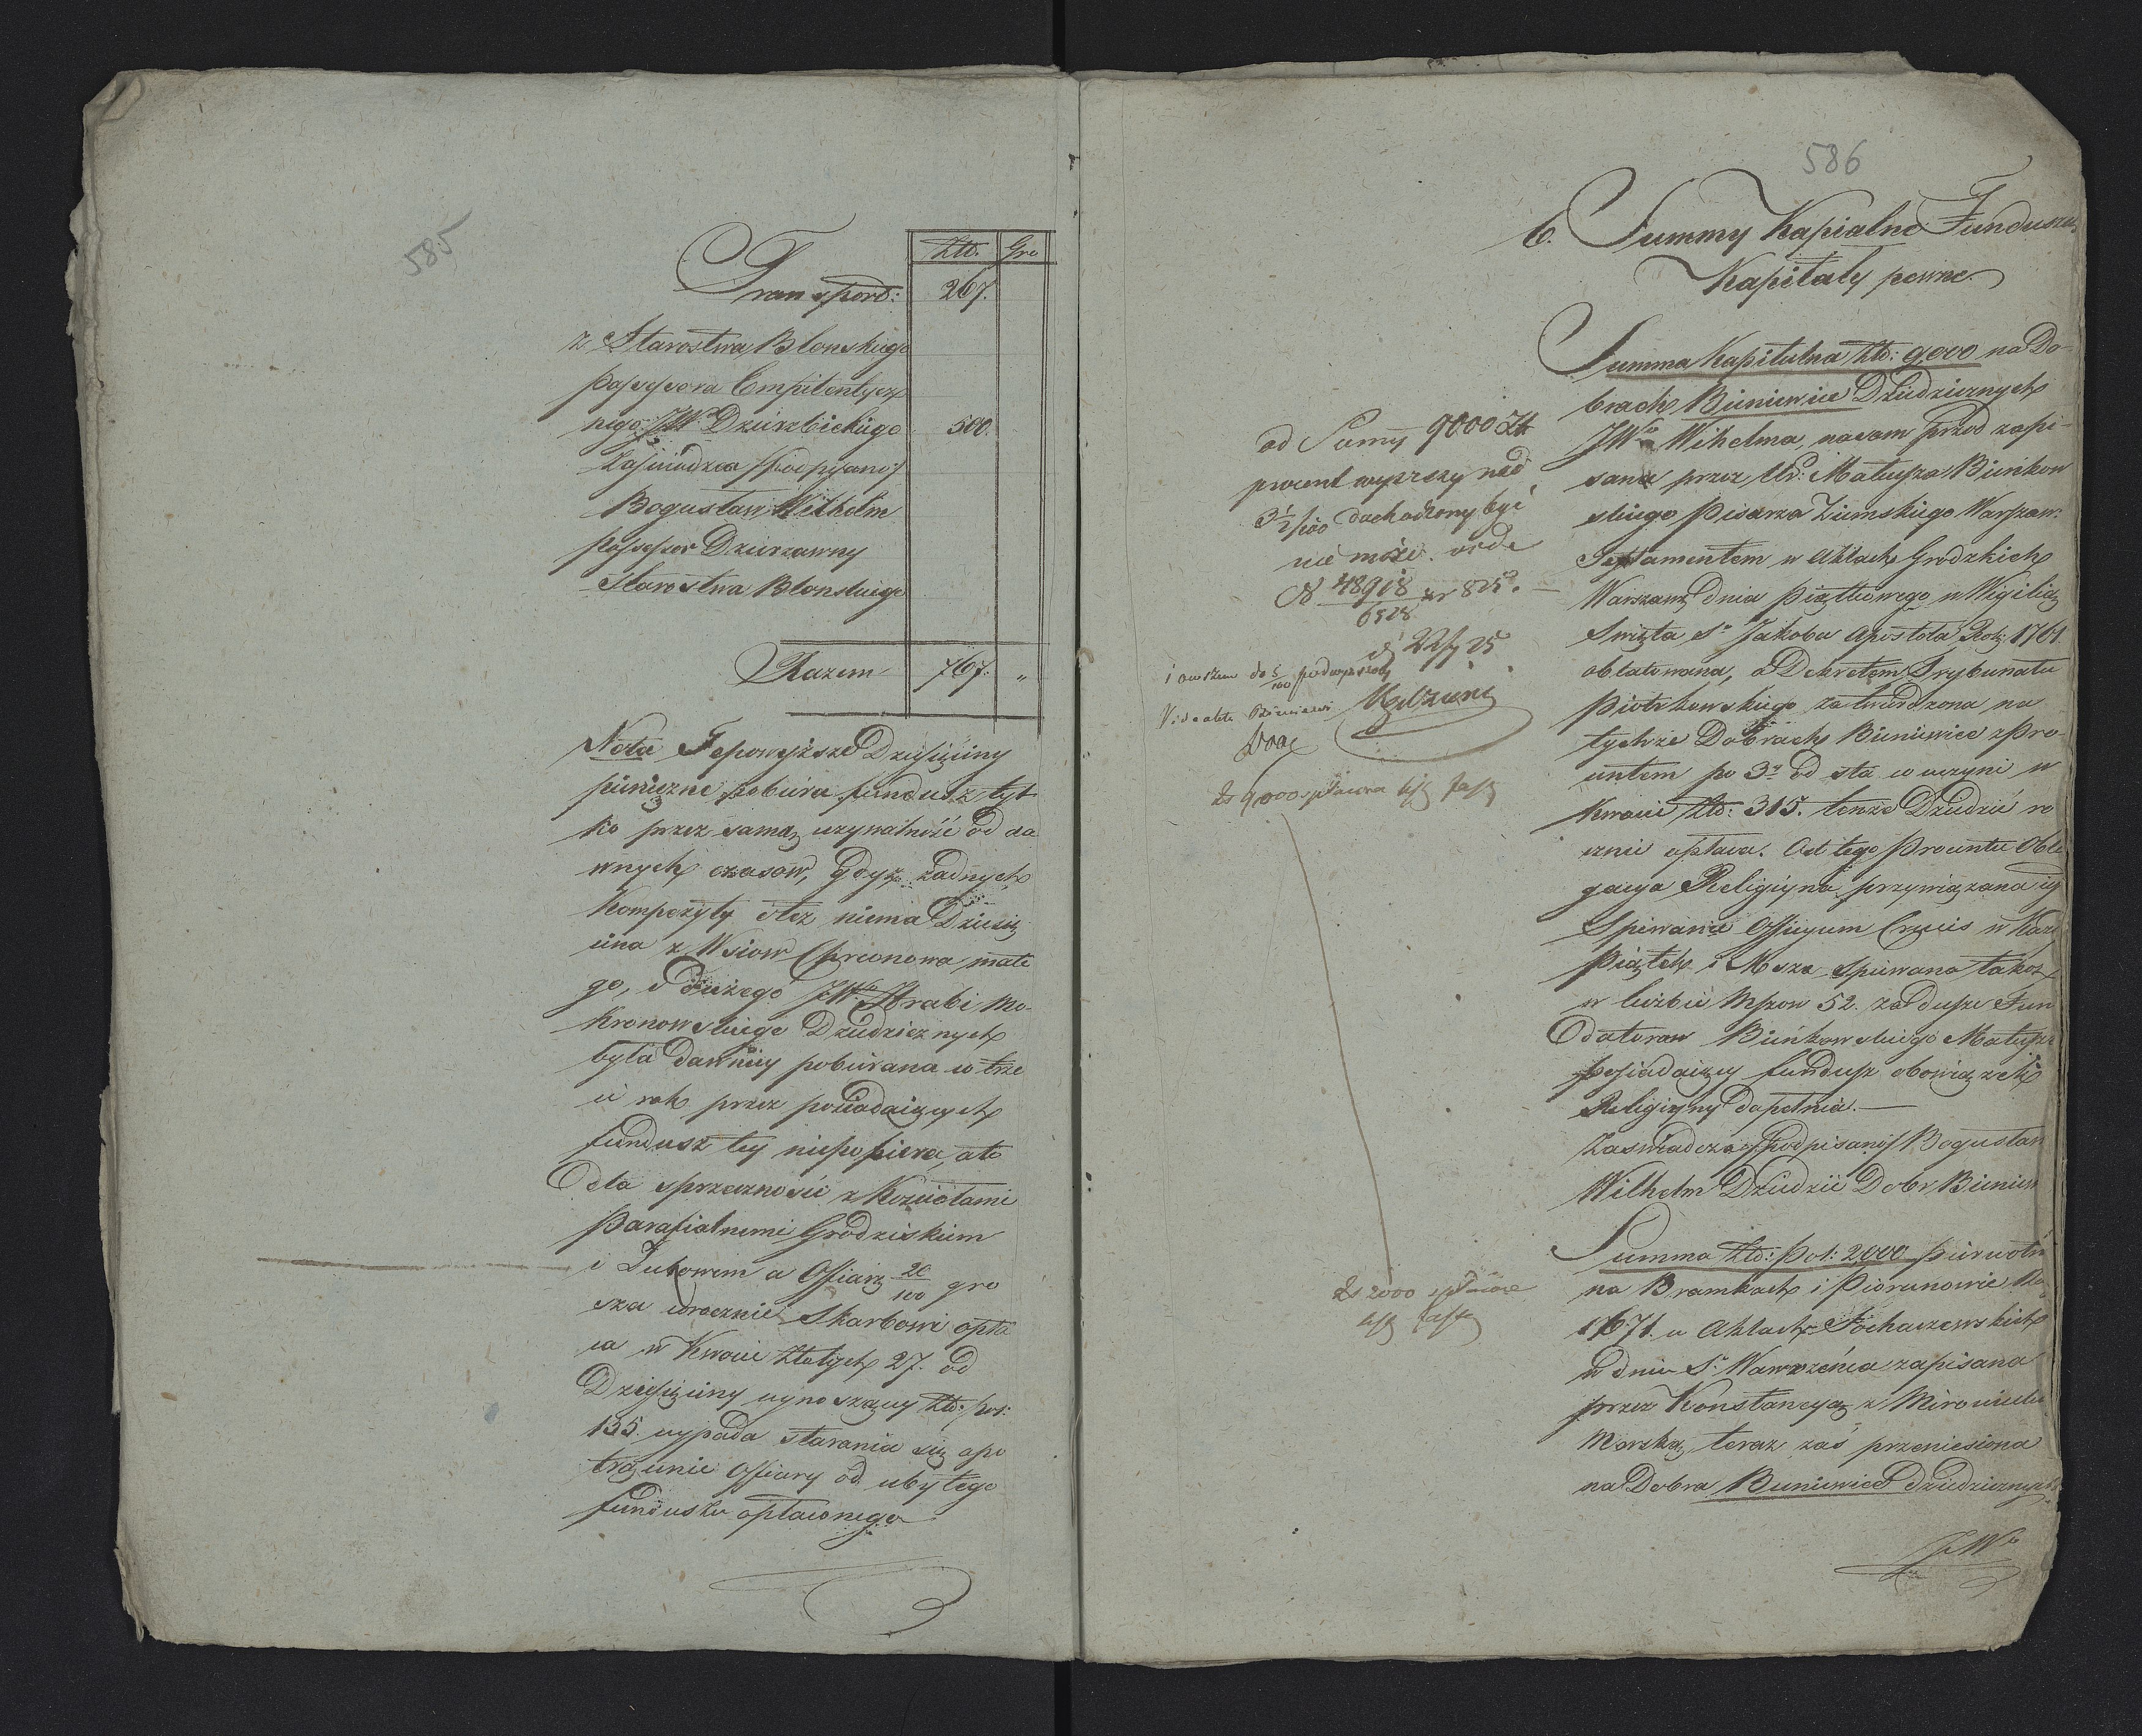 585
Złt: Gro
Transport: 267.
z Starostwa Błonskiego
possessora Empitentycz
nego JWo Dzierzbickiego 500.
Zaswiadcza /: podpisano :/
Bogusław Wilhelm
possessor Dzierzawny
Starostwa Błonskiego
Razem 767. "
Nota Te powyższe Dziesięciny
pieniężne pobiera fundusz tyl
ko przez samą używalność od da
wnych czasow, gdyż żadnych
Kompozyty też niema Dziesię
cina z Wsiow małe
go, i Dużego JWo Hrabi Mo-
kronowskiego Dziedzicznych
była dawniey pobierana co trze
ci rok przez posiadaiących
fundusz tey niepopiera, ale
Oeta sprzeczność z Kościołami
Parafialnemi Grodziskiem
i Żukowem a Offiarę 20/100 gro
sza corocznie Skarbowi opła
ca w Kwocie Złotych 27. od
Dziesięciny wynoszący Złt: pol:
135. wypada starania się o po
trącenie Offiary od ubyłego
funduszu opłaconego
586
6. Summy Kapialne Funduszu
Kapitały pewne.
Summa Kapitalna Złt: 9,000 na Do-
brach Bieniewice Dziedzicznych
JWo Wihelma, nasam przod zapi-
sana przez Ur: Mateusza Bienkow
skiego Pisarza Ziemskiego Warszaw:
Testamentem w Aktach Grodzkich
Warszaw: dnia Piątkowego w Wigilią
Swięta So Jakoba Apostoła Roku 1761
oblatowana, a Dekretem Trybunału
Piotrkowskiego zatwierdzona na
tychże Dobrach Bieniewice z Pro-
centem po 3½ od sta co uczyni w
Kwocie Złt: 315. tenże Dziedzic ro
cznie opłaca. Od tego Procentu Obli
gacya Religiyna przywiązana iest
Spiewanie Officyum Crucis w Każdy
Piątek i Msza Spiewana także
w liczbie Mszow 52. za dusze Fun
datorow Bieńkowskiego Mateusza
posiadaiący fundusz obowiązek
Religiyny dopełnia.—
Zaswiadcza /: podpisano :/ Bogusław
Wilhelm Dziedzic Dobr Bieniew
Summa Złt: Pol: 2,000 pierwotn
na Bramkach i Piorunowie Ro
1671. w Aktach Sochaczewskich
w dniu So Wawrzeńca zapisana
przez Konstancyą z
Morską, teraz zaś przeniesiona
na Dobra Bieniewice Dziedzicznych
JWo
od Sumy 9000 Zł
procent wyższy nad
3½ p100 dochodzony być
nie może. vide
N 48908/6528 xr 825.
d 22/7 25
i owszem do 5/100 podwyższony
Vide akta Bieniewi
Zs 9000 spłacona
Zs 2000 spłacone